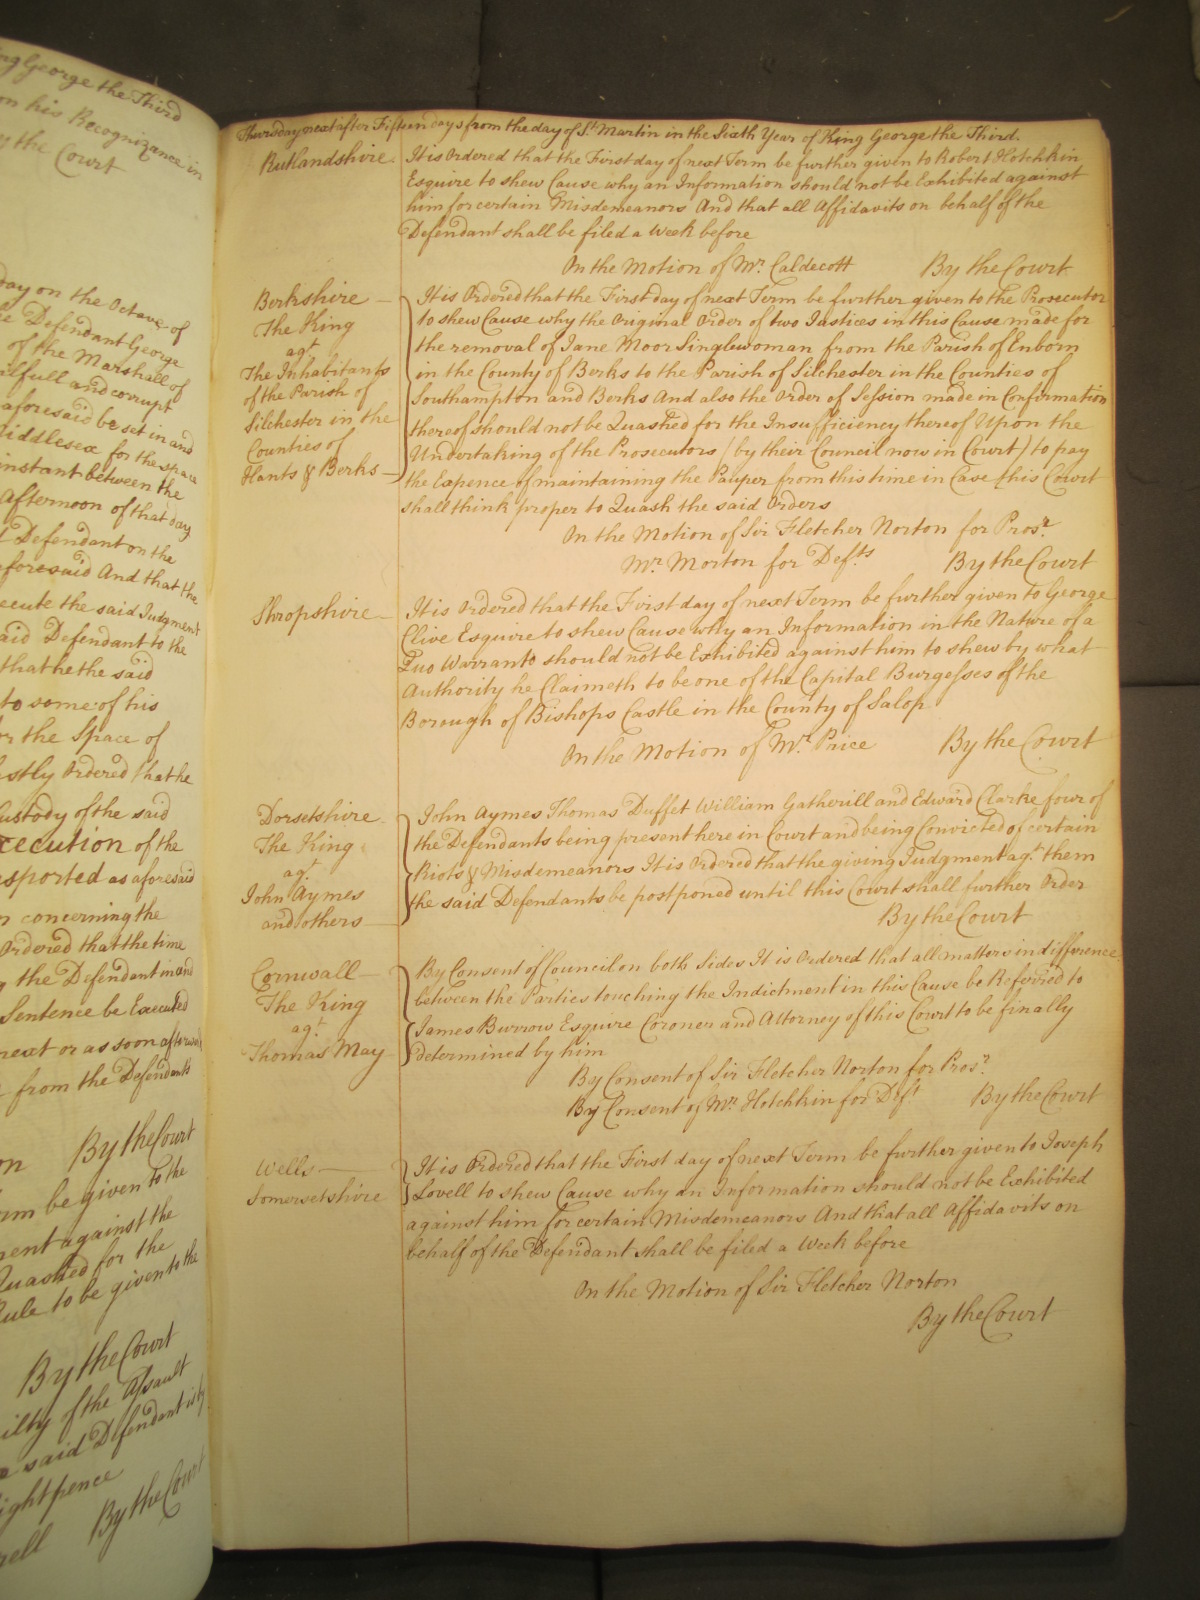 ng George the Third
on his Recognizance in
the Court
day on the Octave of
e Defendant George
of the Marshall of
alfull and corrupt
aforesaid be set in and
iddlesex for the space
instant between the
Afternoon of that day
d Defendant on the
aforesaid And that the
ecute the said Judgment
aid Defendant to the
that he the said
to some of his
the Space of
astly Ordered that he
Custody of the said
xecution of the
nsported as aforesaid
n concerning the
Ordered that the time
g the Defendant in and
Sentence be Executed
next or as soon afterwards
from the Defendants
on By the Court
rm be given to the
ment against the
Quashed for the
Rule to be given to the
By the Court
uilty of the Assault
said Defendant is by
ightpence
By the Court
rell
Thursday next after Fifteen days from the day of St. Martin in the Sixth Year of King George the Third.
Rutlandshire It is Ordered that the First day of next Term be further given to Robert Hotchkin
Esquire to shew Cause why an Information should not be Exhibited against
him for certain Misdemeanors And that all Affidavits on behalf of the
Defendant shall be filed a Week before
On the Motion of Mr. Caldecott By the Court
Berkshire
The King
agt.
The Inhabitants
of the Parish of
Silchester in the
Counties of
Hants & Berks
It is Ordered that the First day of next Term be further given to the Prosecutor
to shew Cause why the Original Order of two Justices in this Cause made for
the removal of Jane Moor Singlewoman from the Parish of Enborn
in the County of Berks to the Parish of Silchester in the Counties of
Southampton and Berks And also the Order of Session made in Confirmation
thereof should not be Quashed for the Insufficiency thereof Upon the
Undertaking of the Prosecutors (by their Council now in Court) to pay
the Expence of maintaining the Pauper from this time in Case this Court
shall think proper to Quash the said Orders
On the Motion of Sir Fletcher Norton for Prosr.
Mr. Morton for Defts. By the Court
Shropshire It is Ordered that the First day of next Term be further given to George
Clive Esquire to shew Cause why an Information in the Nature of a
Quo Warranto should not be Exhibited against him to shew by what
Authority he Claimeth to be one of the Capital Burgesses of the
Borough of Bishops Castle in the County of Salop
On the Motion of Mr. Price By the Court
Dorsetshire
The King
agt.
John Aymes
and others
John Aymes Thomas Duffet William Gatherill and Edward Clarke four of
the Defendants being present here in Court and being Convicted of certain
Riots & Misdemeanors It is Ordered that the giving Judgment agt. them
the said Defendants be postponed until this Court shall further Order
By the Court
Cornwall
The King
agt.
Thomas May
By Consent of Council on both Sides It is Ordered that all matters in difference
between the Parties touching the Indictment in this Cause be Referred to
James Burrow Esquire Coroner and Attorney of this Court to be finally
determined by him
By Consent of Sir Fletcher Norton for Prosr.
By Consent of Mr. Hotchkin for Deft By the Court
Wells
Somersetshire
It is Ordered that the First day of next Term be further given to Joseph
Lovell to shew Cause why an Information should not be Exhibited
against him for certain Misdemeanors And that all Affidavits on
behalf of the Defendant shall be filed a Week before
On the Motion of Sir Fletcher Norton
By the Court